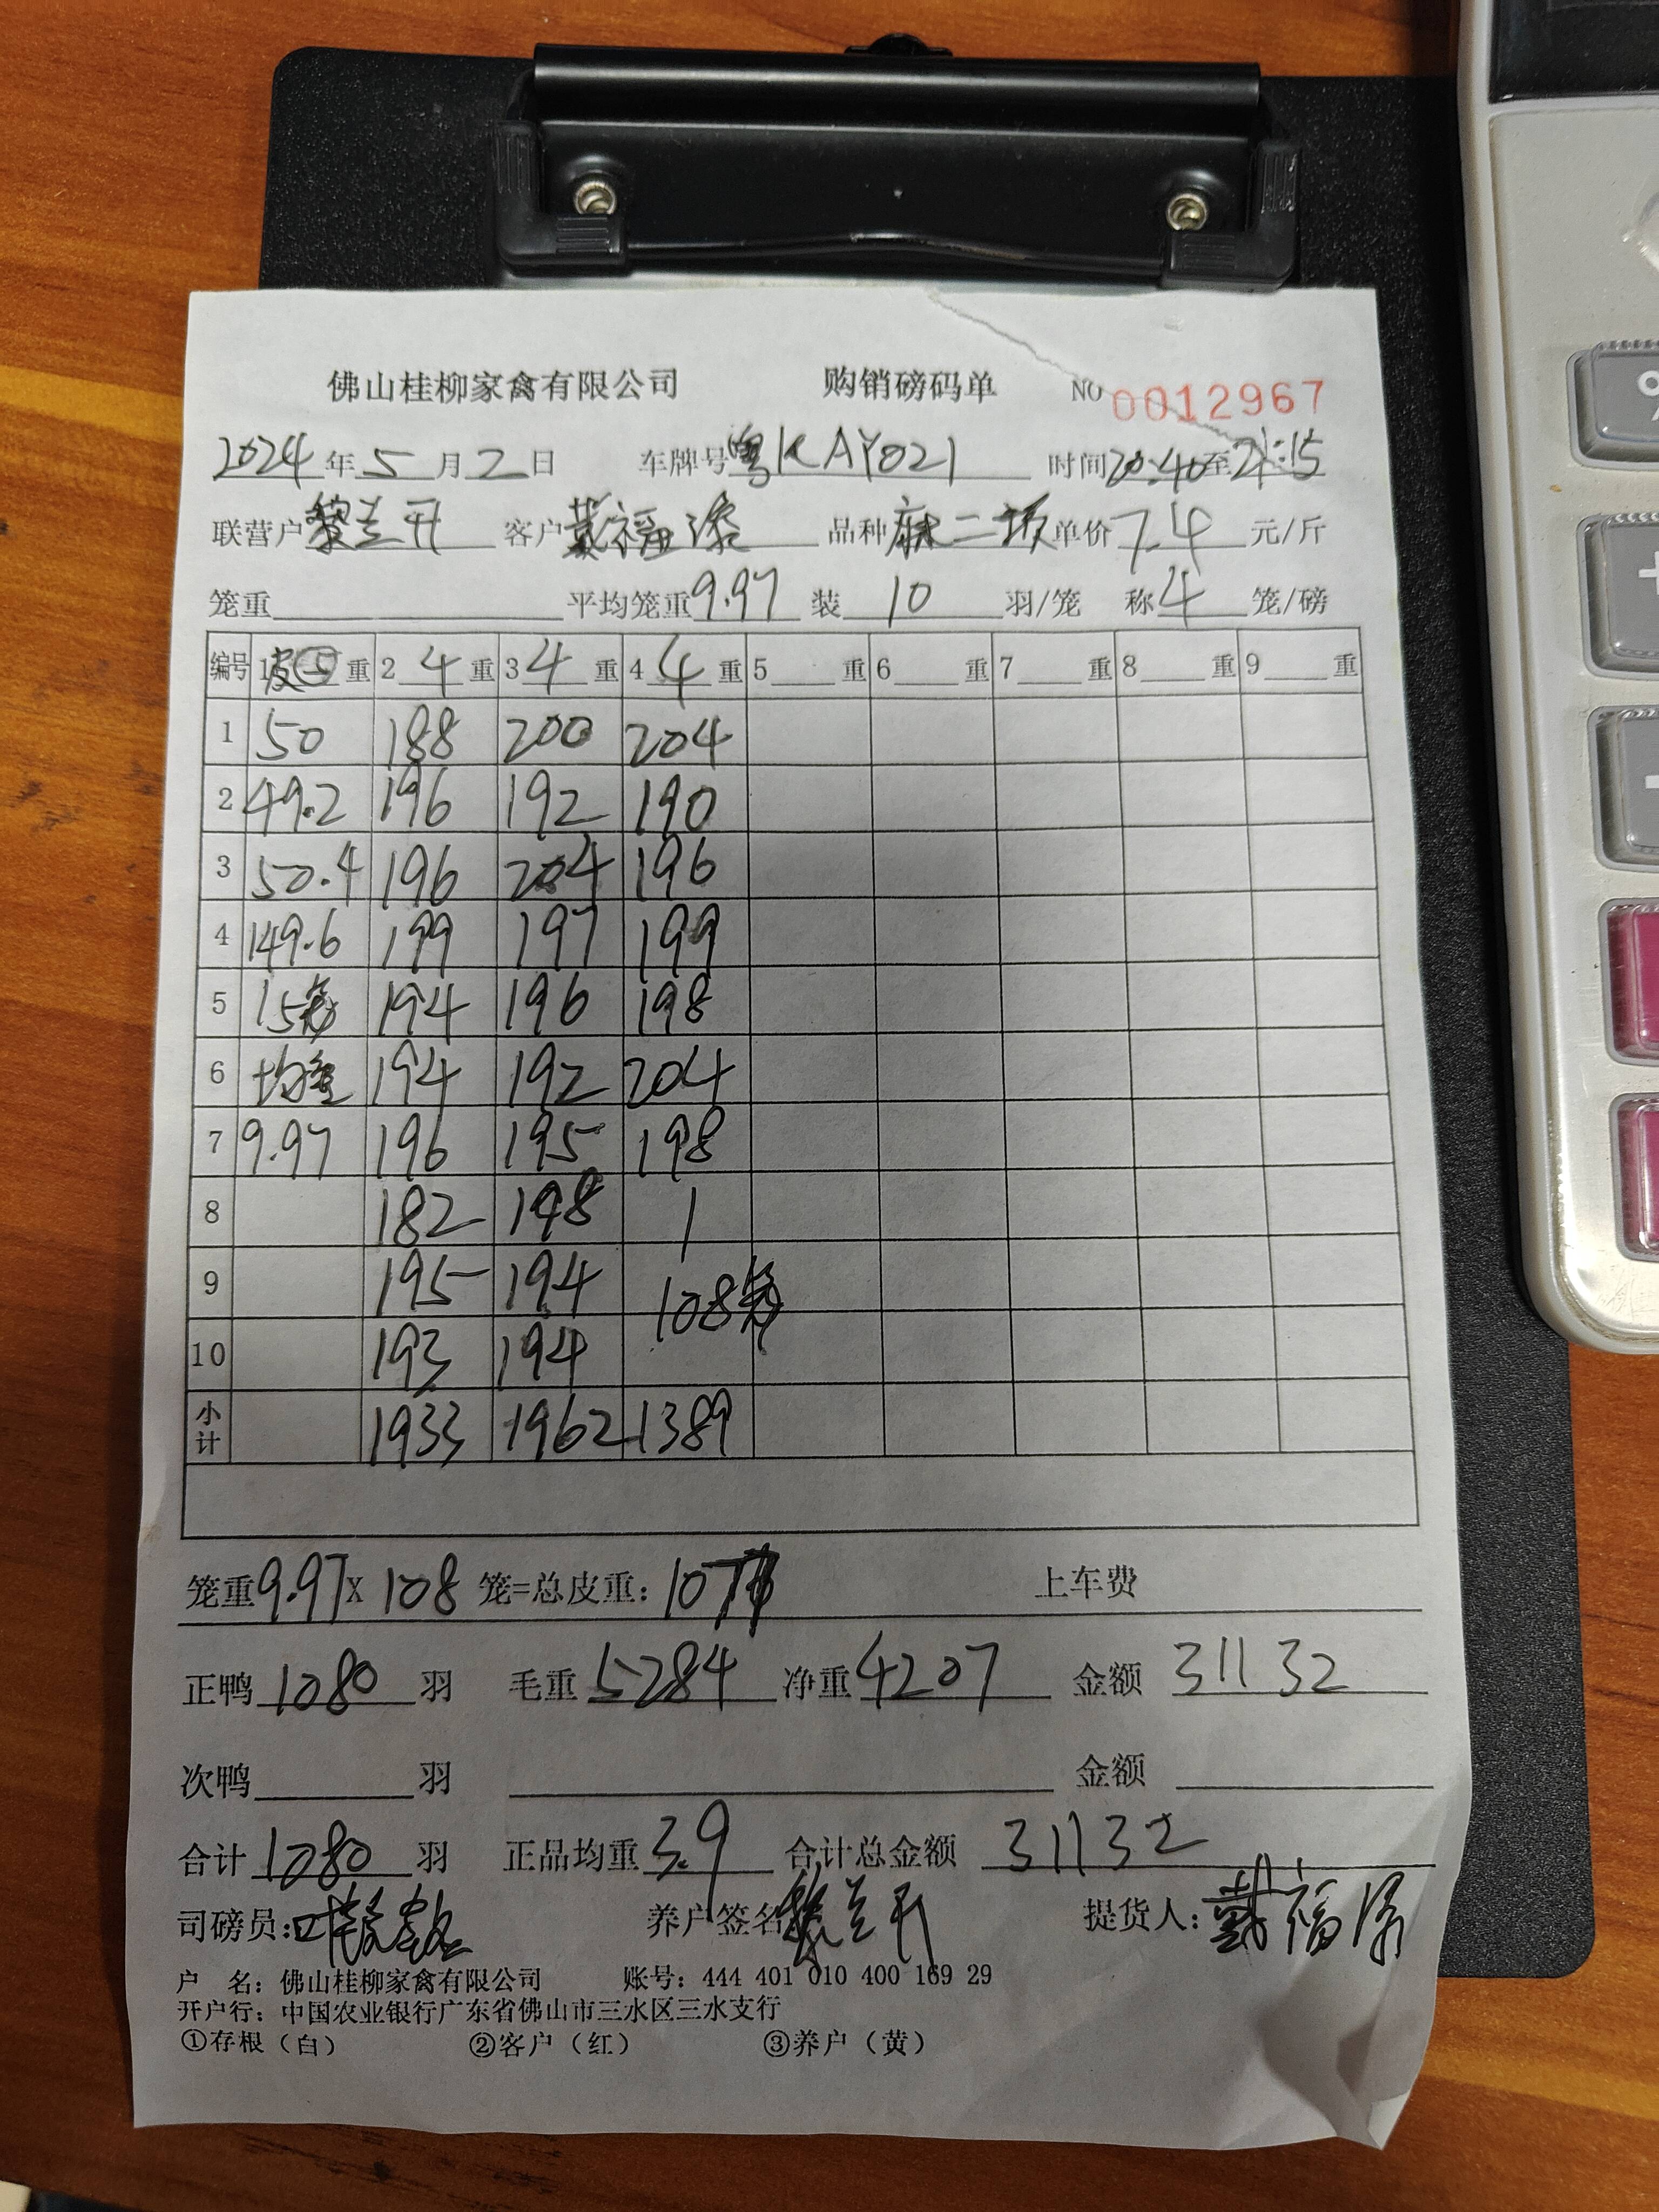 佛山桂柳家禽有限公司 购销磅码单 NO 0012967
2024年5月2日 车牌号粤KAY021 时间20:40至21:15
联营户黎兰开 客户戴福添 品种麻二项单价7.4元/斤
笼重 平均笼重9.97 装10羽/笼 称4笼/磅
编号 1皮⑤重 2 4重 3 4重 4 4重 5 重 6 重 7 重 8 重 9 重
1 50 188 200 204
2 49.2 196 192 190
3 50.4 196 204 196
4 149.6 199 197 199
5 15笼 194 196 198
6 均重 194 192 204
7 9.97 196 195 198
8 182 198 1
9 195 194 108笼
10 193 194
小计 1933 1962 1389
笼重9.97X108笼=总皮重:1077 上车费
正鸭1080羽 毛重5284 净重4207 金额31132
次鸭 羽 金额
合计1080羽 正品均重3.9 合计总金额31132
司磅员: 养户签名黎兰开 提货人:戴福添
户 名:佛山桂柳家禽有限公司 账号:444 401 010 400 169 29
开户行:中国农业银行广东省佛山市三水区三水支行
①存根(白) ②客户(红) ③养户(黄)
9
+
-